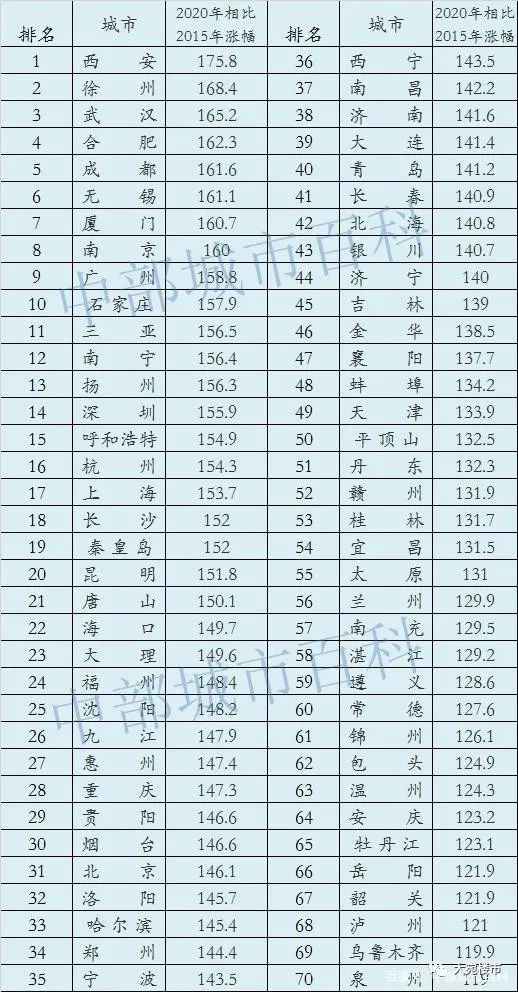 排名 城市 2020年相比2015年涨幅 排名 城市 2020年相比2015年涨幅
1 西安 175.8 36 西宁 143.5
2 徐州 168.4 37 南昌 142.2
3 武汉 165.2 38 济南 141.6
4 合肥 162.3 39 大连 141.4
5 成都 161.6 40 青岛 141.2
6 无锡 161.1 41 长春 140.9
7 厦门 160.7 42 北海 140.8
8 南京 160 43 银川 140.7
9 广州 158.8 44 济宁 140
10 石家庄 157.9 45 吉林 139
11 三亚 156.5 46 金华 138.5
12 南宁 156.4 47 襄阳 137.7
13 扬州 156.3 48 蚌埠 134.2
14 深圳 155.9 49 天津 133.9
15 呼和浩特 154.9 50 平顶山 132.5
16 杭州 154.3 51 丹东 132.3
17 上海 153.7 52 赣州 131.9
18 长沙 152 53 桂林 131.7
19 秦皇岛 152 54 宜昌 131.5
20 昆明 151.8 55 太原 131
21 唐山 150.1 56 兰州 129.9
22 海口 149.7 57 南充 129.5
23 大理 149.6 58 湛江 129.2
24 福州 148.4 59 遵义 128.6
25 沈阳 148.2 60 常德 127.6
26 九江 147.9 61 锦州 126.1
27 惠州 147.4 62 包头 124.9
28 重庆 147.3 63 温州 124.3
29 贵阳 146.6 64 安庆 123.2
30 烟台 146.6 65 牡丹江 123.1
31 北京 146.1 66 岳阳 121.9
32 洛阳 145.7 67 韶关 121.9
33 哈尔滨 145.4 68 泸州 121
34 郑州 144.4 69 乌鲁木齐 119.9
35 宁波 143.5 70 泉州 119
中部城市百科
中部城市百科
大宛楼市